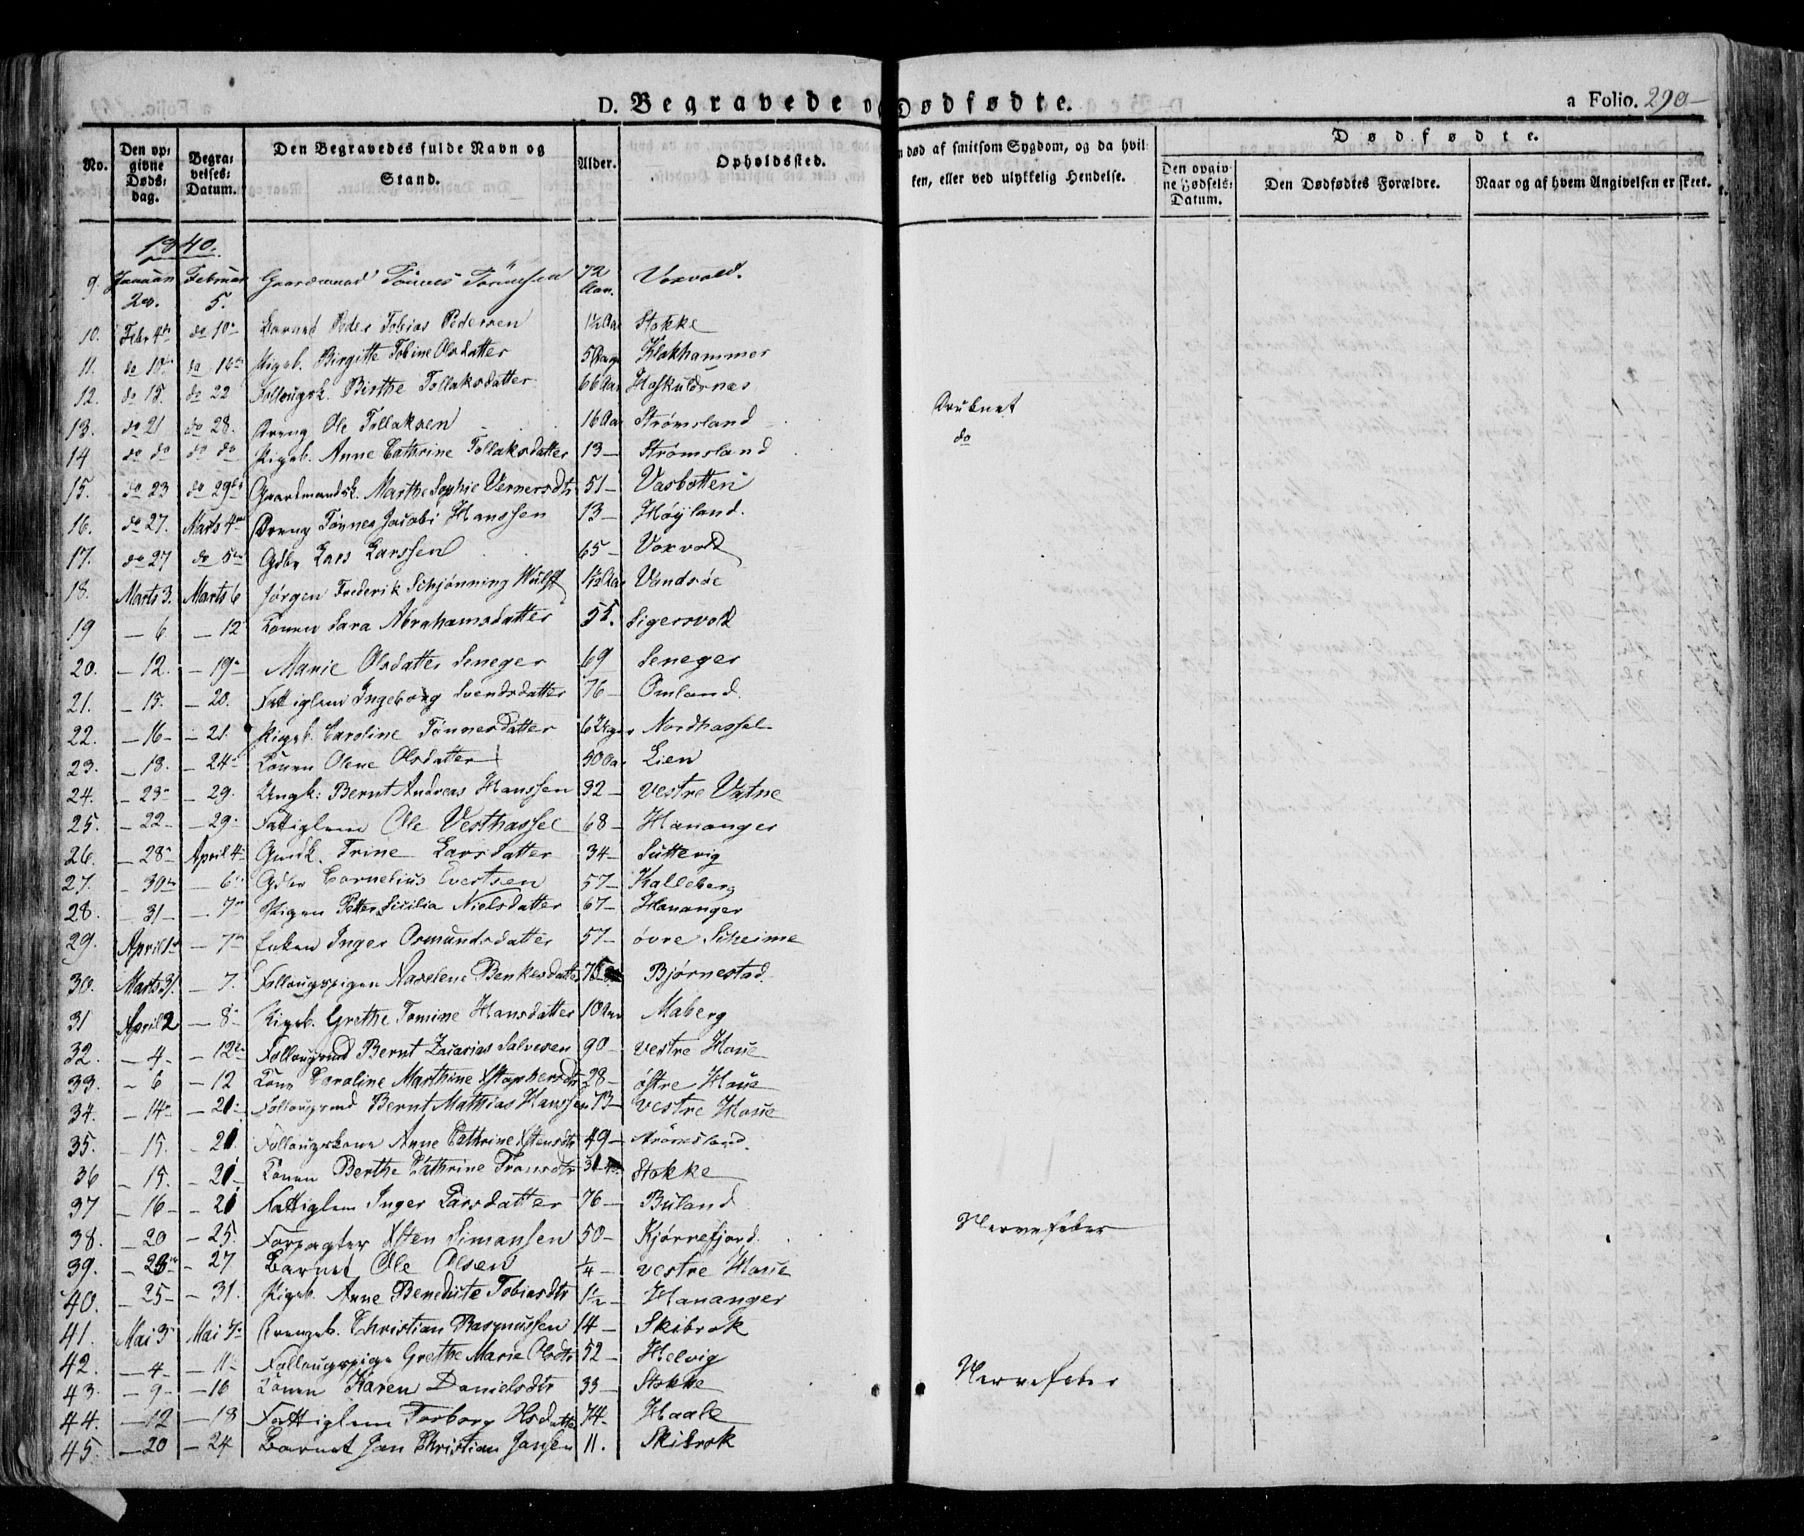 D. Begravede o Dødfødte.
a Folio. 290
No. | Den opgivne Dødsdag. | Begravelses-Datum. | Den Begravedes fulde Navn og Stand. | Alder. | Opholdssted. | n død af smitsom Sygdom, og da hvilken, eller ved ulykkelig Hendelse. | Dødfødte. | Den opgivne Fødsels-Datum. | Den Dødfødtes Forældre. | Naar og af hvem Angivelsen er skeet.
1840.
9. Januar Februar Gaardmand Tønnes Tønnessen 72 Voxvold.
5. Aar.
10. Febr 4 do 10 Barnet Peder Tobias Pedersen 1½ Aar Stokke
11. do 16 Pigeb. Birgitte Tobine Olsdatter Klokhammer
12. do 15. do 22 Birthe Tollaksdatter 66 Aar Haskuldsnes
13. do 21 do 28. Dreng Ole Tollaksen 16 Aar Strømsland
14 do do do do Pigeb. Anne Cathrine Tollaksdatter 13 — Strømsland do
15. do 23 do 29 Gaardmandsk. Marthe Sophie Vernersdtr 51 — Vasbotten
16. do 27. Marts 4 Dreng Tønnes Jacobi Hanssen 13 — Høyland.
17. do 27 do 5 Gdbr Lars Larssen 65 — Voxvold
18. Marts 3. Marts 6 Jørgen Frederik Schjønning Wulff 1½ Aar Vandsøe
19 — 6 — 12 Konen Sara Abrahamsdatter 55. Sigersvold
20. — 12. — 19 Marie Olsdatter Seneger 69 Seneger
21. — 15. — 20. Fattiglem Ingeborg Svendsdatter 76 — Omland.
22. — 16 — — 21. Pigeb. Caroline Tønnesdatter Nordhassel
23. — 18. — 24 Konen Olene Olsdatter 50 Aar Lien
24. — 23 — 29. Ungk: Bernt Andreas Hanssen 32 — vestre Vatne
25. — 22 — — 29. Fattiglem Ole Vesthassel 68 — Hananger
26. — 28 April 4 Gmdk. Trine Larsdatter 34 — Suttevig
27. — 30 — 6 Gdbr Cornelius Evertsen 57 — Kalleberg
28. — 31 — — 7 Pigen Petter Sicilia Nielsdatter 67 — Hananger
29. April 1 — 7 Enken Inger Osmundsdatter 57 — øvre Skeime
30. Marts 31. — 7. Follaugspigen Aaselene Benkesdatter 75 Bjørnestad
31 April 2 — 8 Pigeb. Grethe Tomine Hansdatter 10 Aar Maberg
32. — 4 — — 12 Follaugmd Bernt Zacarias Salvesen 90 — vestre Haue
33. — 6 — 12 Kone Caroline Marthine Xstophersdtr 28 — østre Haue
34. — 14 — 20 Follaugmd Bernt Mathias Hanssen 73 — vestre Haue
35. — 15. — 20. Follaugskone Anne Cathrine Xtensdtr 49 — Strømsland.
36 — 15. — 20 Konen Berthe Cathrine Tronsdtr Stokke
37 — 16 — — 20 Fattiglem Inger Larsdatter 76 — Buland
38. — 20 — 25. Forpagter Xsten Simonsen 50 — Kjørrefjord. Nervefeber
39. — 23 — 27 Barnet Ole Olsen ¼ — vestre Haue
40. — 25 — — 31. Pigeb. Anne Benedicte Tobiasdtr 1½ — Hananger
41. Mai 3 Mai 7 Drengeb. Christian Rasmussen 14 — Skibrok
42. — 4 — — 11 Follaugspige Grethe Marie Olsdtr 52 — Helvig
43. — 9 — — 16 Konen Karen Danielsdtr 33 — Stokke Nervefeber
44. — 12 — 18 Fattiglem Torborg Olsdatter 74 — Haale
45. — 20 — 24 Barnet Jan Christian Jansen 11. Skibrok